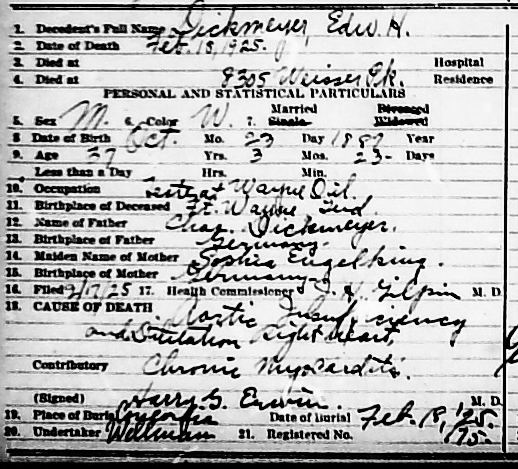 1. Decedent's Full Name Dickmeyer, Edw. H.
2. Date of Death Feb. 18, 1925.
3. Died at Hospital
4. Died at Weisser Pk. Residence
PERSONAL AND STATISTICAL PARTICULARS
Married Divorced
5. Sex M. 6. Color W. 7. Single Widowed
8 Date of Birth Oct. Mo. 23 Day 1887 Year
9. Age 37 Yrs. 3 Mos. 23 Days
Less than a Day Hrs. Min.
10. Occupation at Wayne Oil.
11. Birthplace of Deceased Ft. Wayne, Ind
12. Name of Father Chas. Dickmeyer.
13. Birthplace of Father Germany.
14. Maiden Name of Mother Sophia Engelking.
15. Birthplace of Mother Germany
16. Filed 2/17/25 17. Health Commissioner Gilpin M. D.
18. CAUSE OF DEATH Aortic Insufficiency
and Dilitation Right heart,
Contributory Chronic Myocarditis.
(Signed) Harry G. Erwin. M. D.
19. Place of Burial Concordia Date of Burial Feb. 18, 125.
20. Undertaker Wellman 21. Registered No. 175.